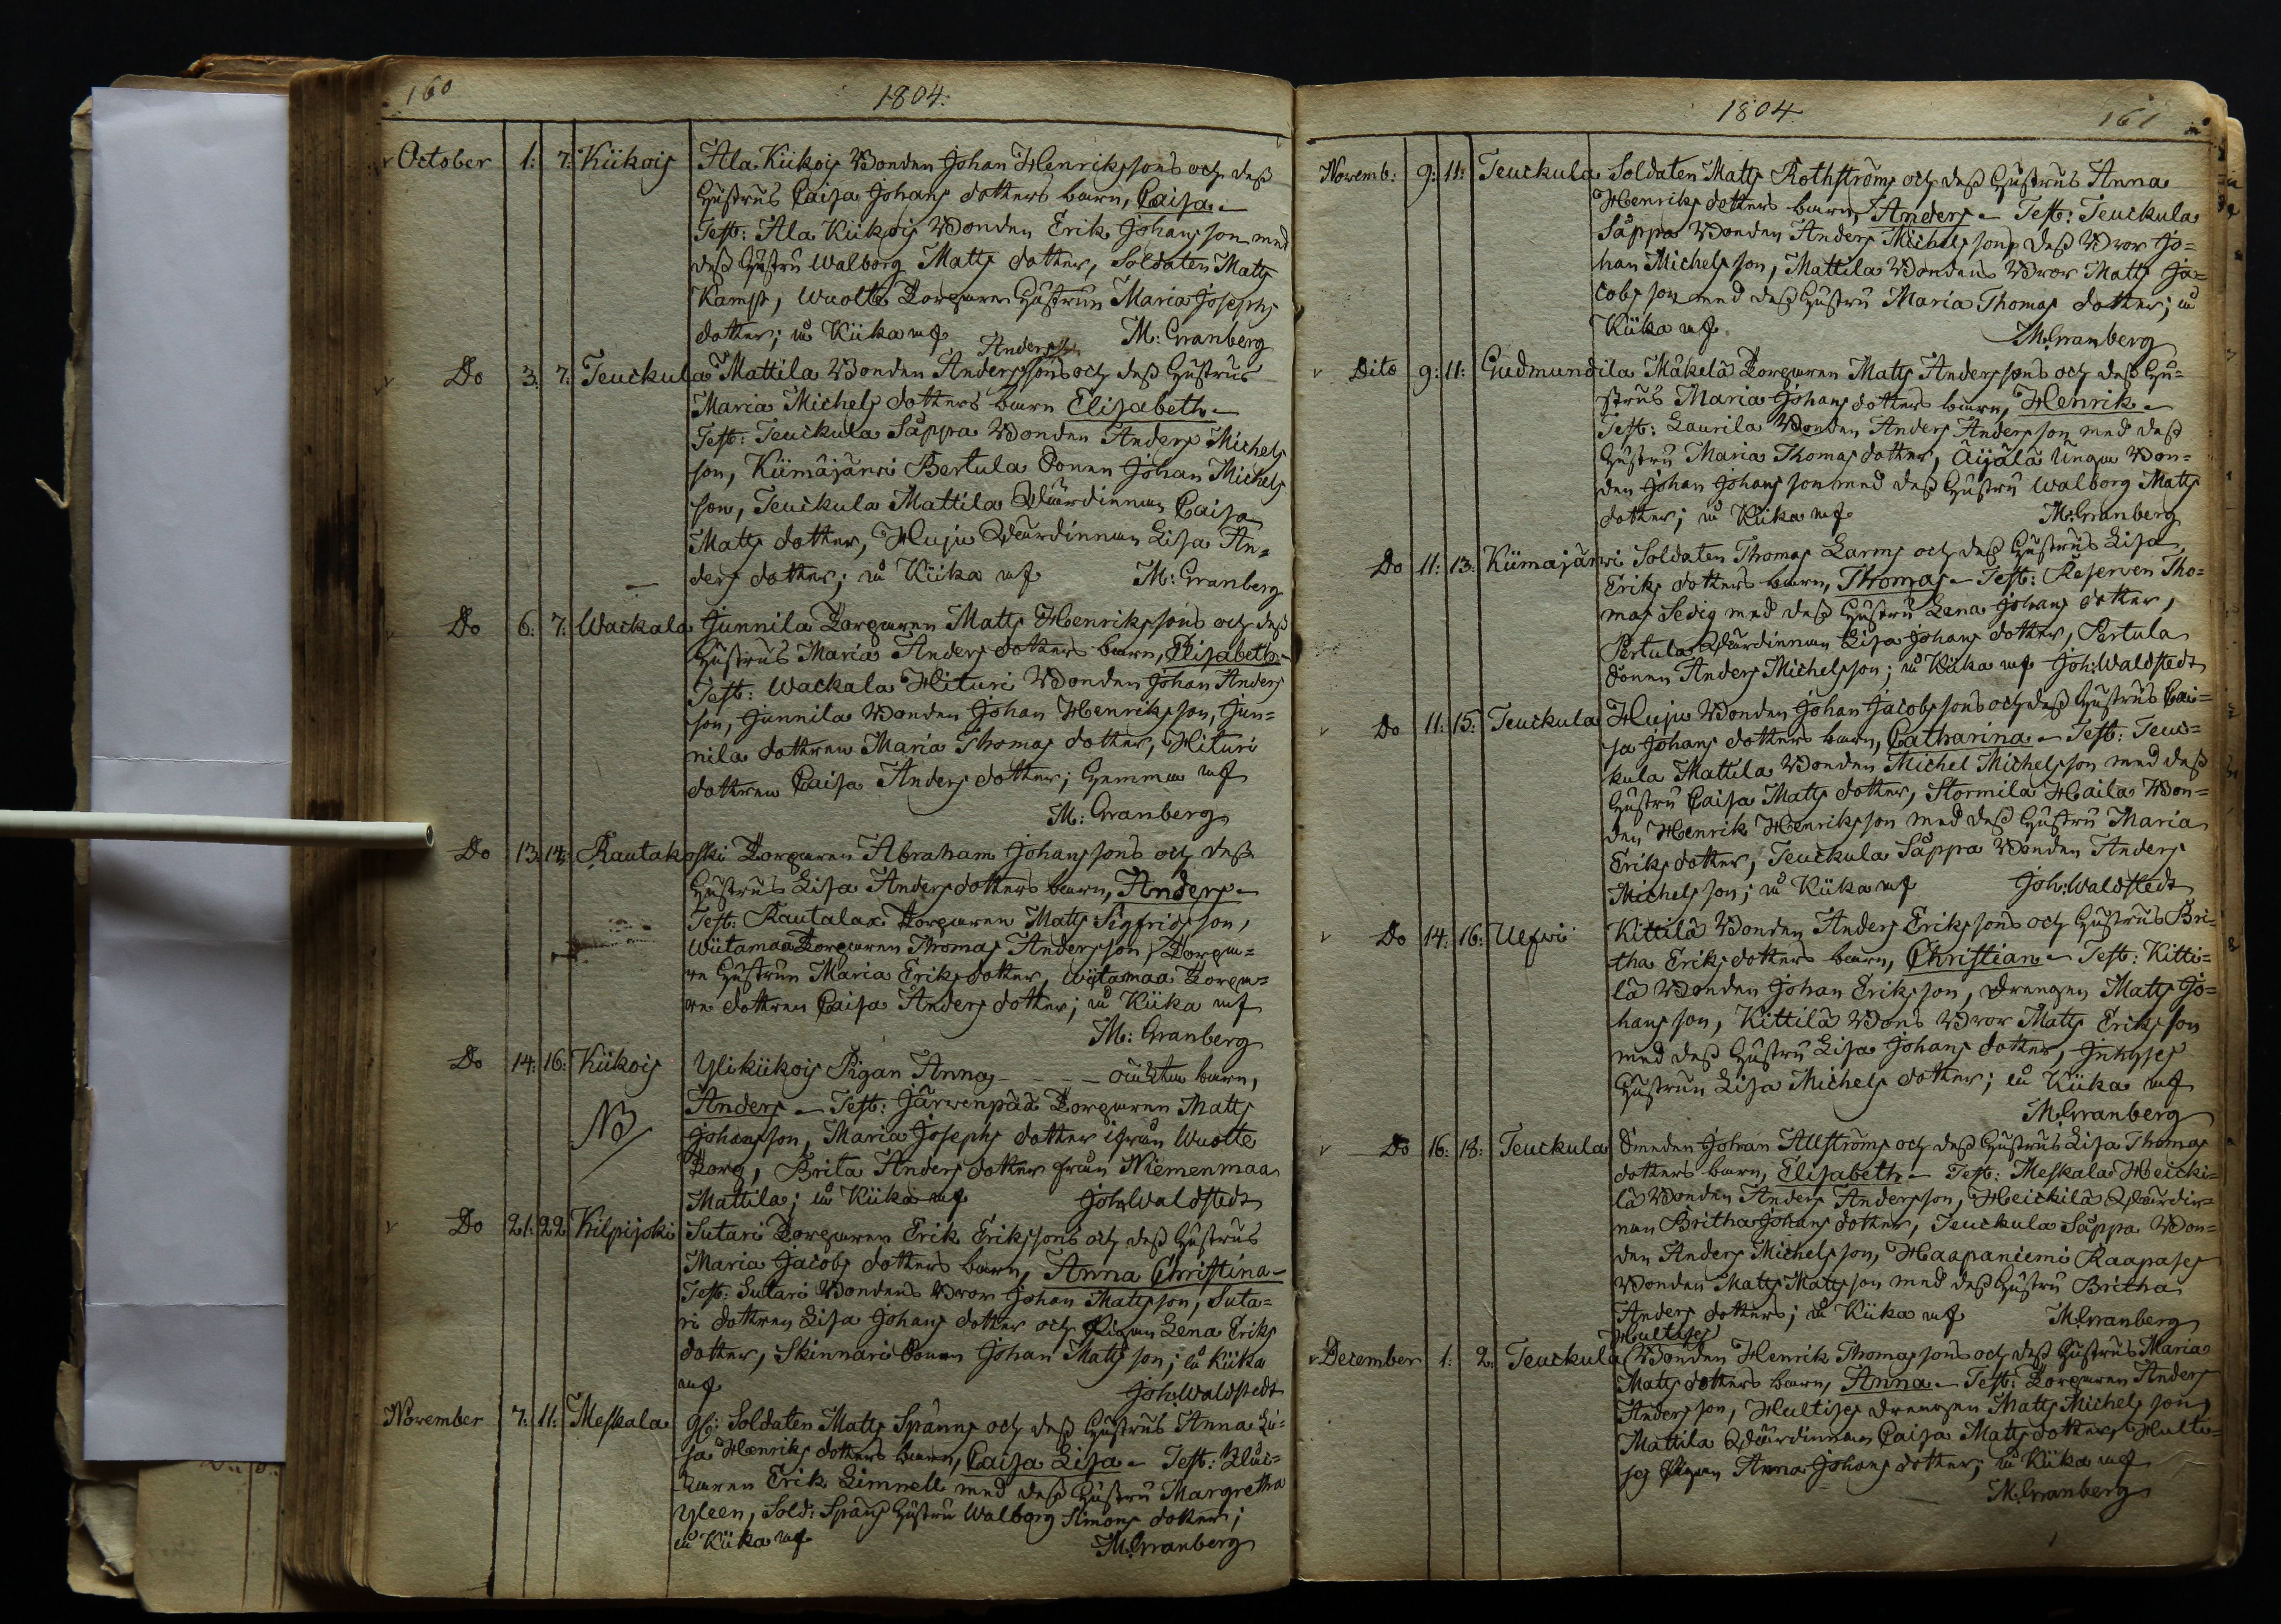 160
1804.
October 1: 7: Kiikois Ala Kiikois Bonden Johan Henrikssons och dess
hustrus Caisa Johans dotters barn, Caisa.
Test: Ala Kiikois Bonden Erik Johansson med
dess hustru Walborg Matts dotter, Soldaten Matts
Kamp, Wuolte Torpare hustrun Maria Josephs
dotter; in Kiika af M: Granberg
Anderss
Do 3: 7: Teuckula Mattila Bonden Anderssons och dess hustrus
Maria Michels dotters barn Elisabeth
Test: Teuckula Säppä Bonden Anders Michels
son, Kiimajärwi Bertula Sonen Johan Michels
son, Teuckula Mattila Wärdinnan Caisa
Matts dotter, Huju Wärdinnan Lisa An=
ders dotter; in Kiika af M: Granberg
Do 6: 7: Wackala Junnila Torparen Matts Henrikssons och dess
hustrus Maria Anders dotters barn, Elisabeth
Test: Wackala Hituri Bonden Johan Anders
son, Junnila Bonden Johan Henriksson, Jun=
nila dottren Maria Thomas dotter, Hituri
dottren Caisa Anders dotter; hemma af
M: Granberg
Do 13: 14: Rautakoski Torparen Abraham Johanssons och dess
hustrus Lisa Anders dotters barn, Anders
Test: Rautalax Torparen Matts Sigfridsson,
Wiitamaa Torparen Thomas Andersson, Torpa=
re hustrun Maria Eriks dotter, Wiitamaa Torpa=
re dottren Caisa Anders dotter; in Kiika af
M: Granberg
Do 14: 16: Kiikois Ylikiikois Pigan Annas - - - oächta barn,
NB Anders Test: Järwenpää Torparen Matts
Johansson, Maria Josephs dotter ifrån Wuolte
Torp, Brita Anders dotter från Niemenmaa
Mattila; in Kiika af Joh: Waldstedt
Do 21: 22: Kilpijoki Sutari Torparen Erik Erikssons och dess hustrus
Maria Jacobs dotters barn, Anna Christina
Test: Sutari Bondens Bror Johan Matsson, Suta=
ri dottren Lisa Johans dotter och Pigan Lena Eriks
dotter, Skinnari Sonen Johan Matsson; in Kiika
af Joh: Waldstedt
November 7: 11: Meskala Soldaten Matts Spänns och dess hustrus Anna Li=
sa Henriks dotters barn, Caisa Lisa Test: Kluc=
karen Erik Limnell med dess hustru Margretha
Yleen, Sold: Späns hustru Walborg Simons dotter;
in Kiika af M: Granberg
1804
161
Novemb: 9: 11: Teuckula Soldaten Matts Rothströms och dess hustrus Anna
Henriks dotters barn, Anders Test: Teuckula
Säppä Bonden Anders Michelsson, dess Bror Jo=
han Michelsson, Mattila Bondens Bror Matts Ja=
cobsson med dess hustru Maria Thomas dotter; in
Kiika af M: Granberg
Dito 9: 11: Gudmundila Mäkelä Torparen Matts Anderssons och dess hu=
strus Maria Johans dotters barn, Henrik
Test: Laurila Bonden Anders Andersson med dess
hustru Maria Thomas dotter, Äijälä Unga Bon=
den Johan Johansson med dess hustru Walborg Matts
dotter; in Kiika af M: Granberg
Do 11: 13: Kiimajärwi Soldaten Thomas Larms och dess hustrus Lisa
Eriks dotters barn, Thomas Test: Reserven Tho=
mas Sedig med dess hustru Lena Johans dotter,
Pertula Wärdinnan Lisa Johans dotter, Pertula
Sonen Anders Michelsson; in Kiika af Joh: Waldstedt
Do 11: 15: Teuckula Huju Bonden Johan Jacobssons och dess hustrus Cai=
sa Johans dotters barn, Catharina Test: Teuc=
kula Mattila Bonden Michel Michelsson med dess
hustru Caisa Matts dotter, Stormila Haila Bon=
den Henrik Henriksson med dess hustru Maria
Eriks dotter, Teuckula Säppä Bonden Anders
Michelsson; in Kiika af Joh: Waldstedt
Do 14: 16: Uefwi Kittilä Bonden Anders Erikssons och hustrus Bri=
tha Eriks dotters barn, Christian Test: Kitti=
lä Bonden Johan Eriksson, drengen Matts Jo=
hansson, Kittilä Bond: Bror Matts Eriksson
med dess hustru Lisa Johans dotter,
hustrun Lisa Michels dotter; in Kiika af
M: Granberg
Do 16: 18: Teuckula Smeden Johan Allströms och dess hustrus Lisa Thomas
dotters barn, Elisabeth Test: Meskala Heicki=
lä Bonden Anders Andersson, Heickilä Wärdin=
nan Britha Johans dotter, Teuckula Säppä Bon=
den Anders Michelsson, Haapaniemi Raapases
Bonden Matts Matsson med dess hustru Britha
Anders dotter; in Kiika af M: Granberg
Hultises
December 1: 2: Teuckula Bonden Henrik Thomassons och dess hustrus Maria
Matts dotters barn, Anna Test: Torparen Anders
Andersson, Hultises drengen Matts Michelsson,
Mattila Wärdinnan Caisa Matts dotter, Hulti=
ses Pigan Anna Johans dotter; in Kiika af
M: Granberg